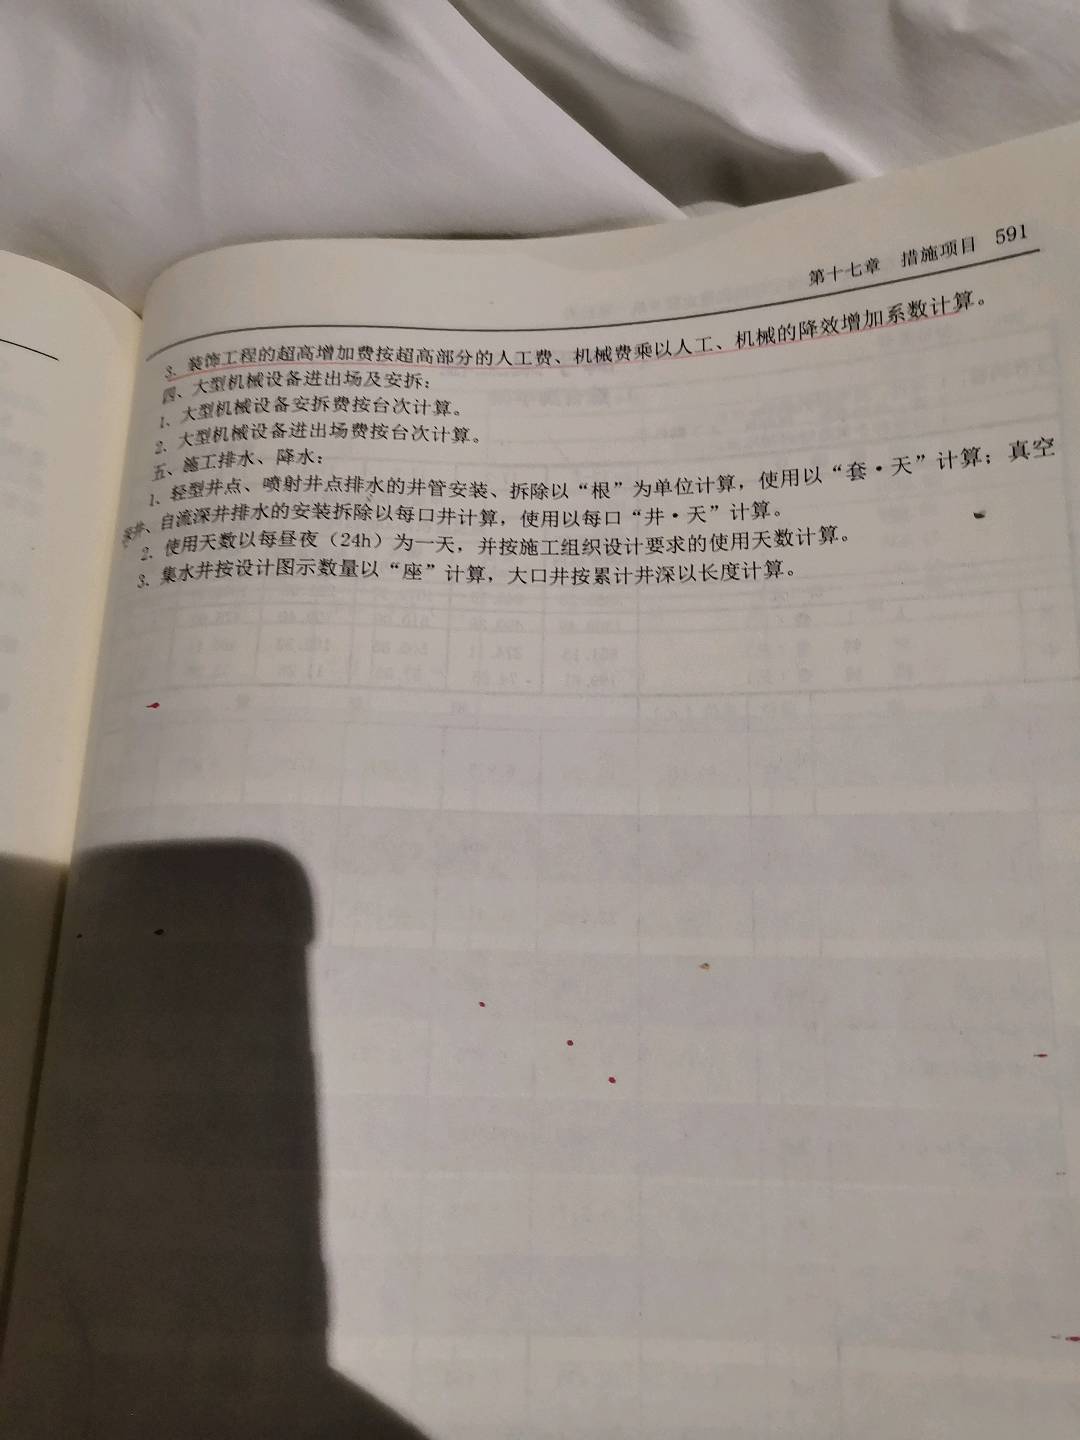 第十七章 措施项目 591
3. 装饰工程的超高增加费按超高部分的人工费、机械费乘以人工、机械的降效增加系数计算。
四、大型机械设备进出场及安拆：
1. 大型机械设备安拆费按台次计算。
2. 大型机械设备进出场费按台次计算。
五、施工排水、降水：
1. 轻型井点、喷射井点排水的井管安装、拆除以“根”为单位计算，使用以“套·天”计算；真空
深井、自流深井排水的安装拆除以每口井计算，使用以每口“井·天”计算。
2. 使用天数以每昼夜（24h）为一天，并按施工组织设计要求的使用天数计算。
3. 集水井按设计图示数量以“座”计算，大口井按累计井深以长度计算。